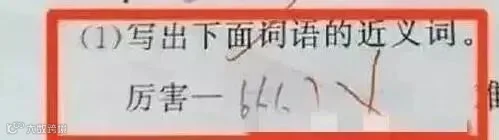 (1)写出下面词语的近义词。
厉害—666
大数跨境